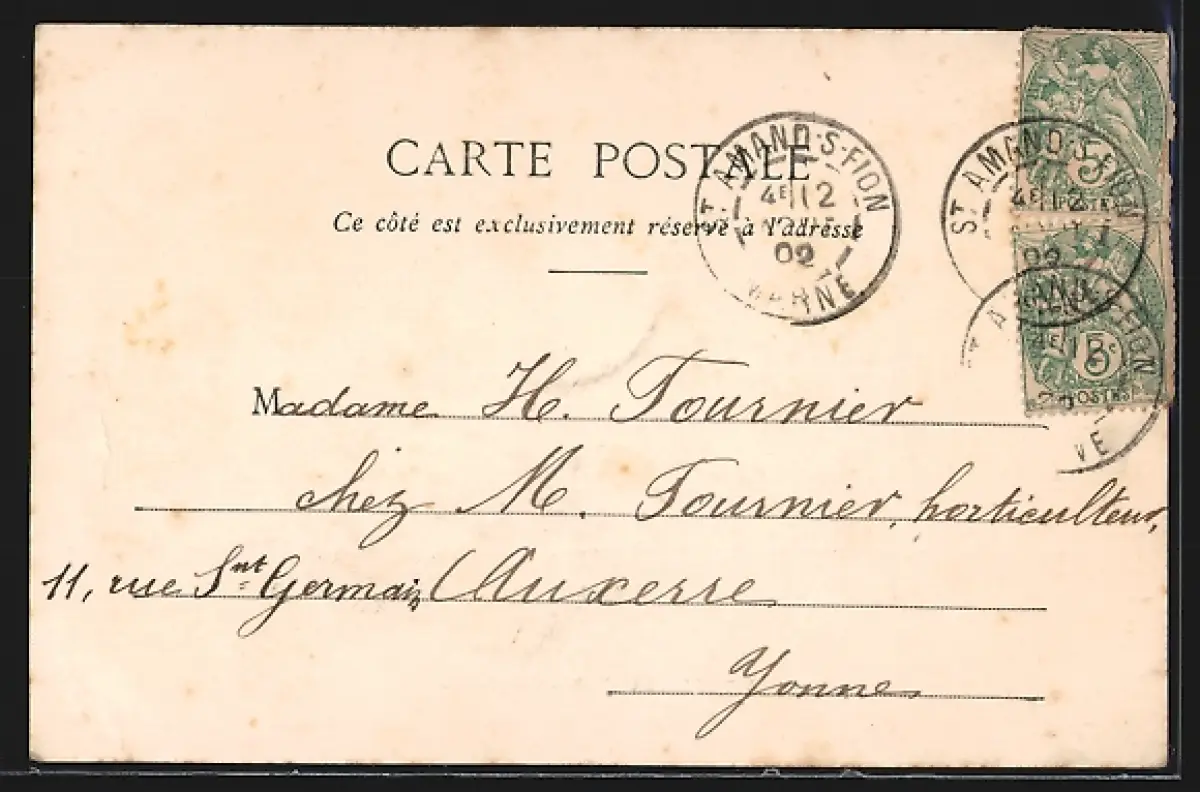 CARTE POSTALE
Ce côté est exclusivement réservé à l'adresse
ST AMAND-S-FION
4E 12
02
MARNE
ST AMAND-S-FION
4E 12
02
5
POSTES
5c
POSTES
Madame H. Tournier
chez M. Tournier, horticulteur,
11, rue Snt Germain Auxerre
Yonne